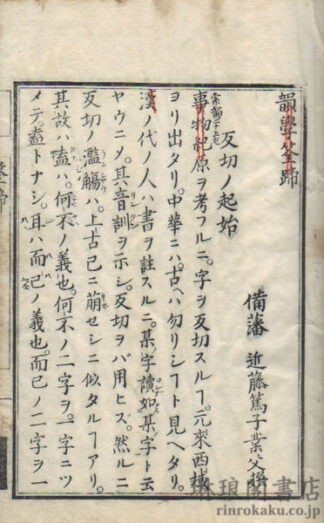 韻學筌蹄
備藩 近藤篤子業父撰
反切ノ起始
事物紀原ヲ考フルニ。字ヲ反切スルヿ。元來西域
ヨリ出タリ。中華ニハ。古ヘハ勿リシヿト見ヘタリ。
漢ノ代ノ人ハ書ヲ註スルニ。某ノ字讀如某ノ字ト云
ヤウニメ。其音訓ヲ示シ。反切ヲバ用ヒズ。然ルニ
反切ノ濫觴ハ。上古已ニ萠セシニ似タルヿアリ。
其故ハ盍ハ。何不ノ義也。何不ノ二字ヲ。一字ニツ
メテ。盍トナシ。耳ハ而已ノ義也。而已ノ二字ヲ一
琳琅閣書店
rinrokaku.co.jp